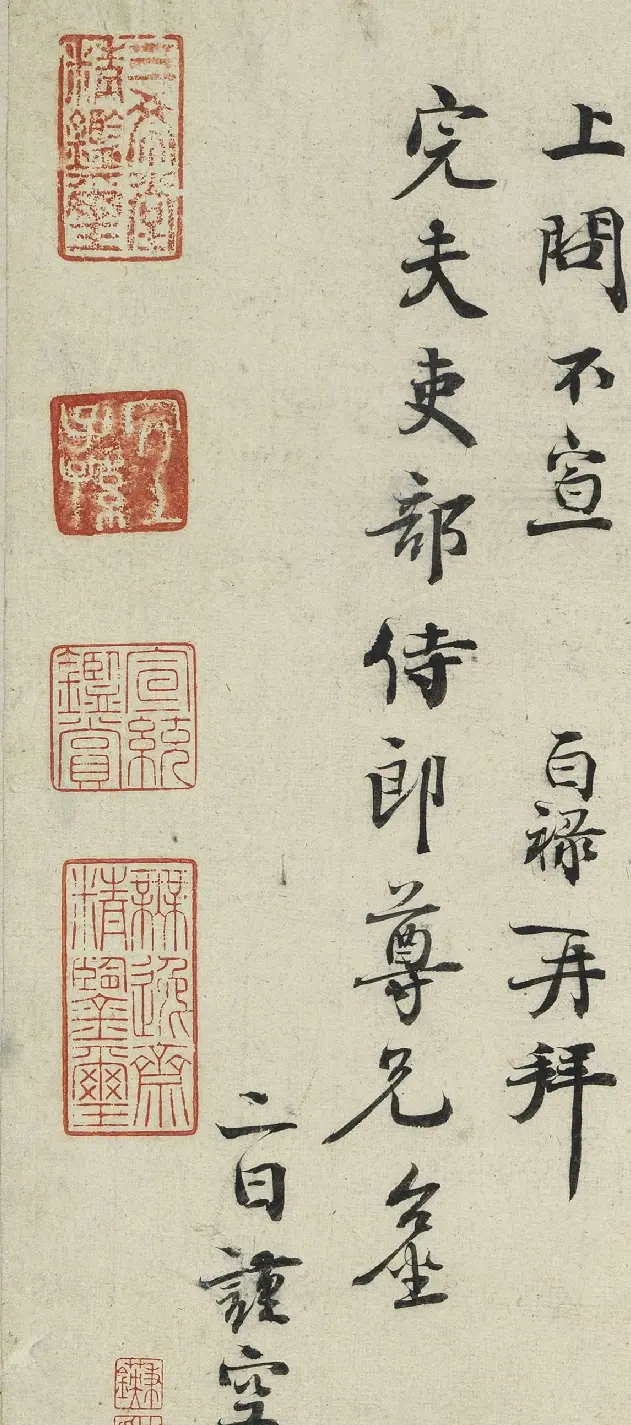 上問不宣　百禄再拜
完夫吏部侍郎尊兄台坐
二日謹空
三希堂精鑑璽
宜子孫
宣統鑑賞
無逸齋精鑒璽